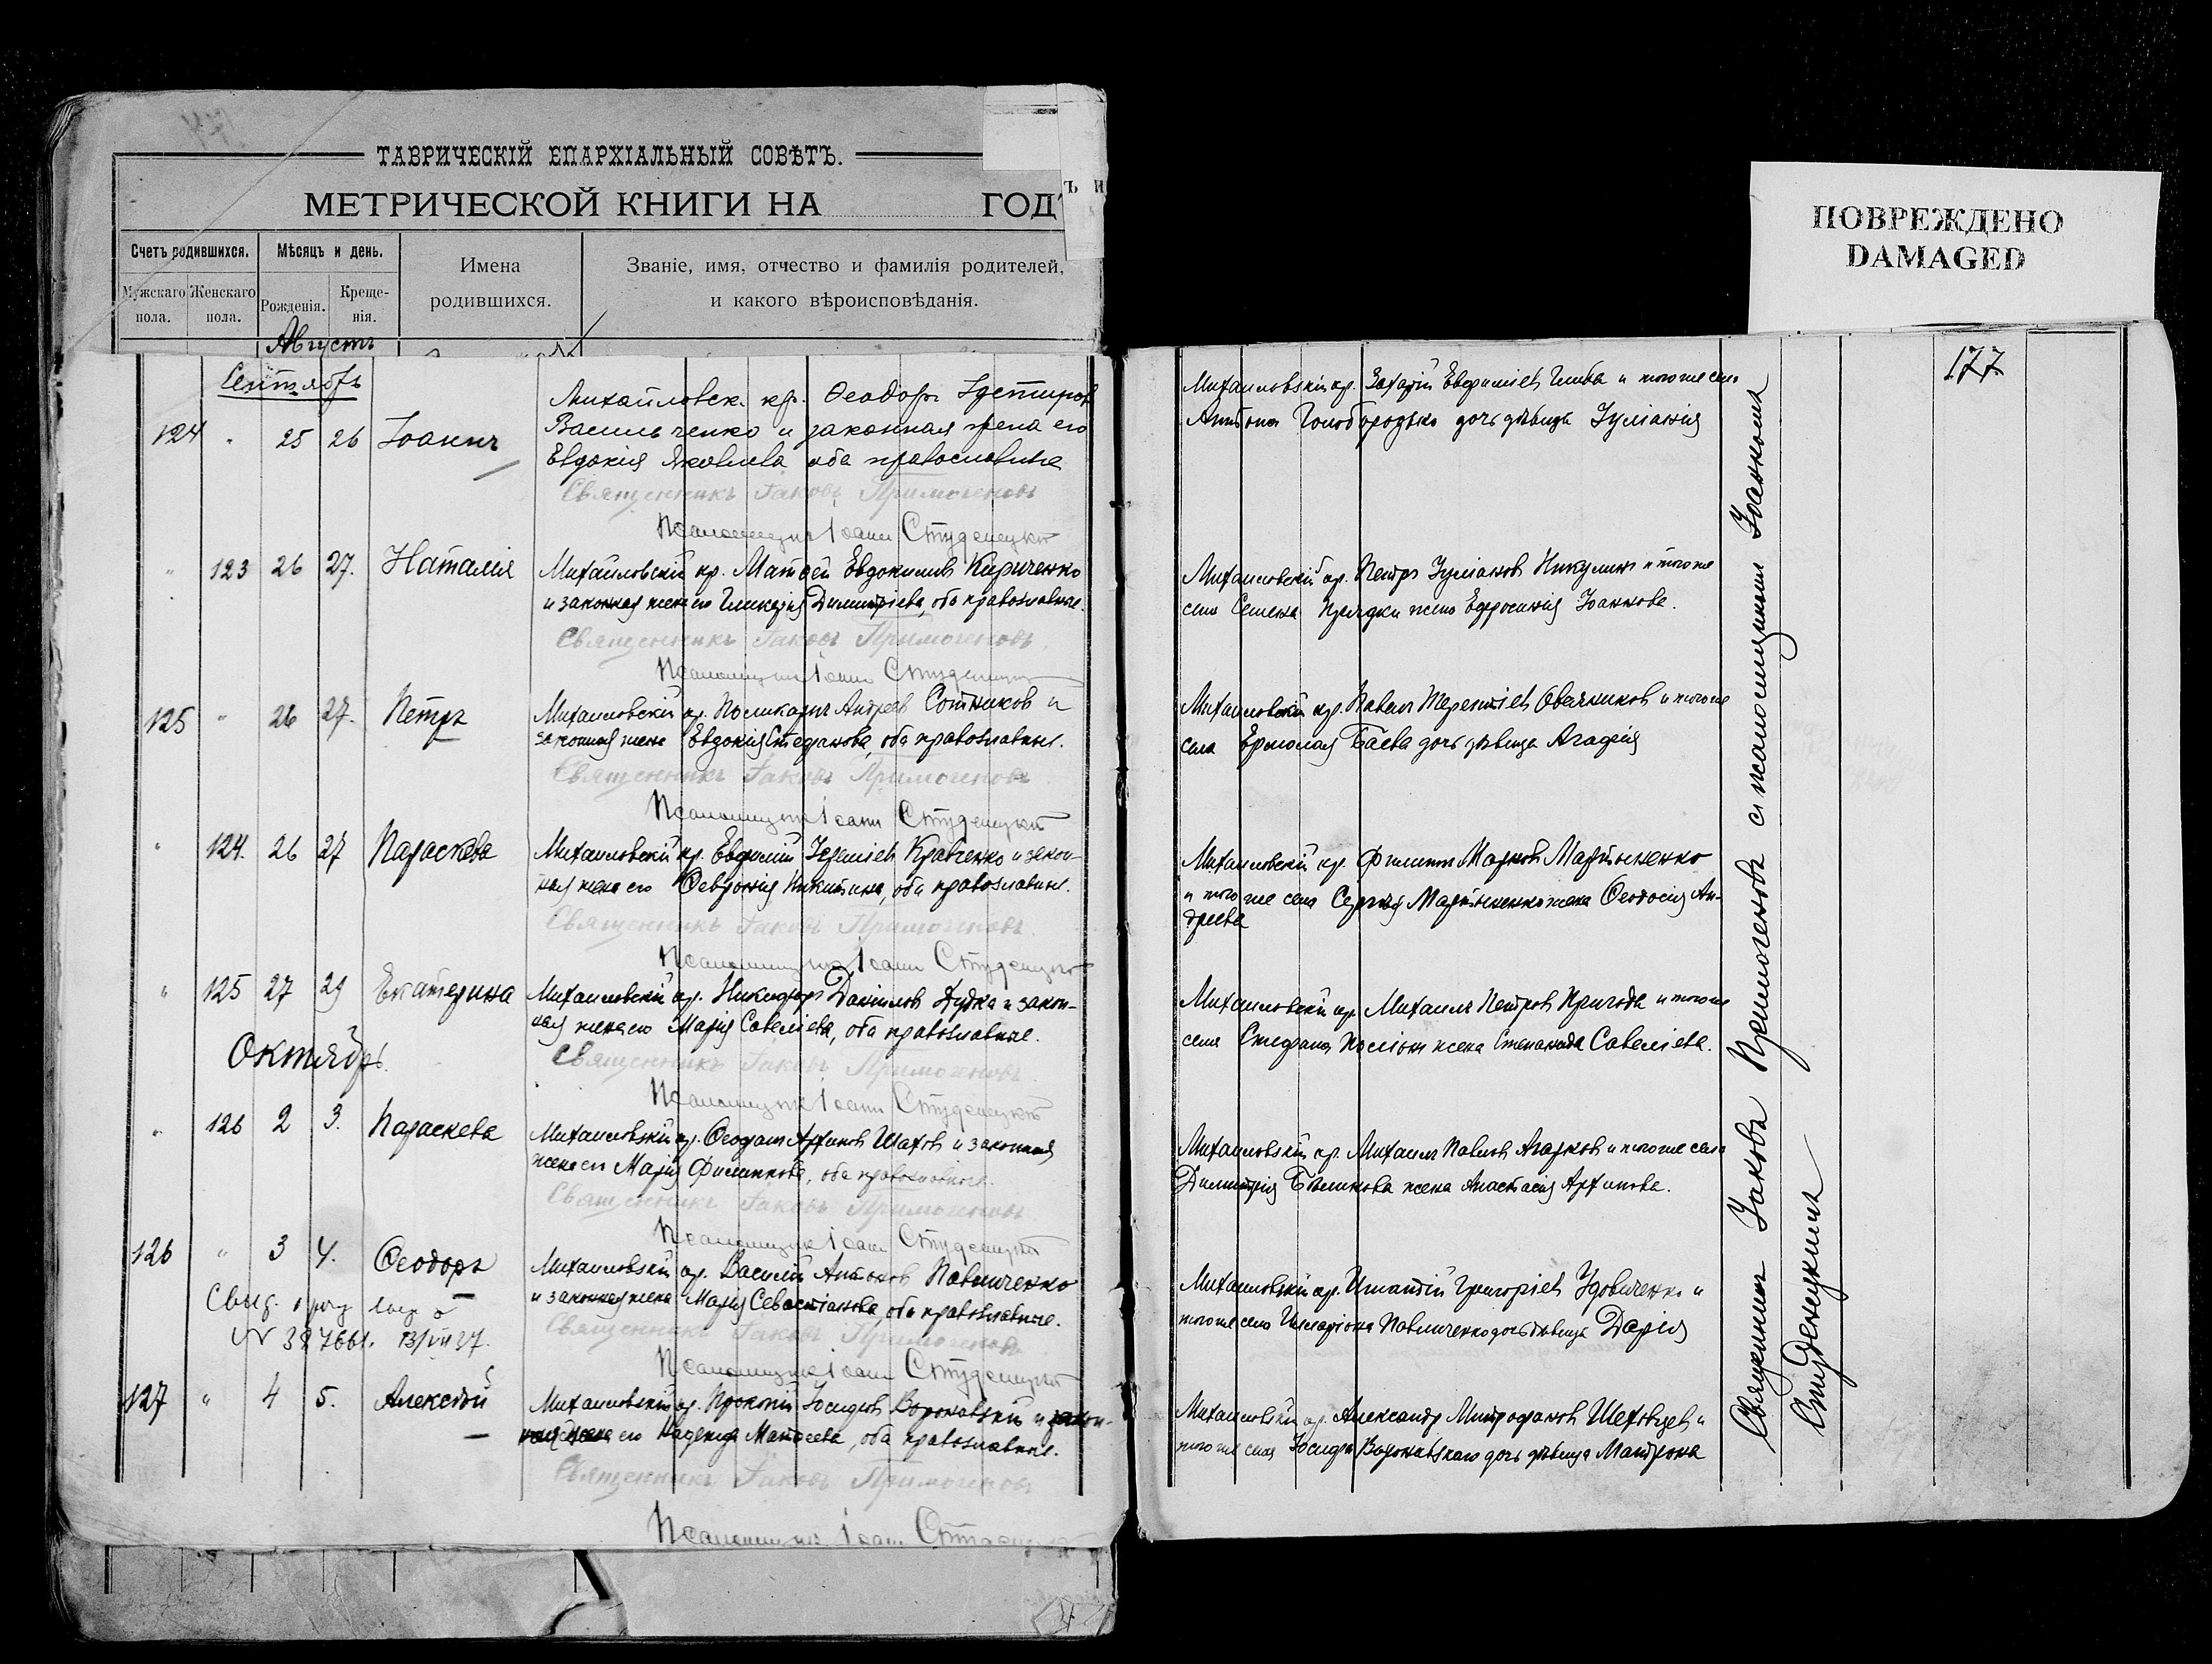 ТАВРИЧЕСКІЙ ЕПАРХІАЛЬНЫЙ СОВѢТЪ.
МЕТРИЧЕСКОЙ КНИГИ НА ГОДЪ
ъ и
Счетъ родившихся.
Мужскаго пола.
Женскаго пола.
Мѣсяцъ и день.
Рожденія.
Креще-
нія.
Имена
родившихся.
Званіе, имя, отчество и фамилія родителей,
и какого вѣроисповѣданія.
Августъ
Сентябрь
124 " 25 26 Іоаннъ
Михайловск. кр. Ѳеодоръ
Васильченко и законная жена его
Евдокия Яковлева оба православные
Священникъ Іаковъ Примогеновъ
Псаломщикъ Іоанн Студенецкій
" 123 26 27. Наталія
Михайловскій кр. Матѳей Евдокимовъ Кириченко
и законная жена его Гликерія Димитріева, оба православные.
Священникъ Іаковъ Примогеновъ
Псаломщикъ Іоанн Студенецкій
125 " 26 27. Петръ
Михайловскій кр. Поликарпъ Андреев Сотников и
законная жена Евдокія Стефанова, оба православные.
Священникъ Іаковъ Примогеновъ
Псаломщикъ Іоанн Студенецкій
" 124. 26 27 Параскева
Михайловскій кр. Евфимій Іереміев Кравченко и закон-
ная жена его Февронія Никитина, оба православные.
Священникъ Іаковъ Примогеновъ
Псаломщикъ Іоанн Студенецкій
" 125 27 29 Екатерина
Михайловскій кр. Никифоръ Даніилов Дудка и закон-
ная жена его Марія Савеліева, оба православные.
Священникъ Іаковъ Примогеновъ
Псаломщикъ Іоанн Студенецкій
Октябрь.
" 126 2 3. Параскева
Михайловскій кр. Ѳеодот Архипов Шахов и законная
жена его Марія Филиппова, оба православные.
Священникъ Іаковъ Примогеновъ
Псаломщикъ Іоанн Студенецкій
126 " 3 4. Ѳеодоръ
Михайловскій кр. Василій Антонов Павличенко
и законная жена Марія Севастіанова, оба православные.
Священникъ Іаковъ Примогеновъ
Псаломщикъ Іоанн Студенецкій
Свид. о рожд.
N 387661. 13/VII 37.
127 " 4 5. Алексѣй
Михайловскій кр. Прокопій Іосифов Вороновскій и закон-
ная жена его Надежда Матѳеева, оба православные.
Священникъ Іаковъ Примогеновъ
Псаломщикъ Іоанн
ПОВРЕЖДЕНО
DAMAGED
177
Михайловскій кр. Захарій Евфиміев Глиба и того же села
Антона Голобородько дочь дѣвица Іуліанія
Михайловскій кр. Петръ Іуліанов Никулин и того же
села Семена Прядки жена Ефросинія Іоаннова.
Михайловскій кр. Павелъ Терентіев Овечников и того же
села Ермолая Баева дочь дѣвица Агафія
Михайловскій кр. Филиппъ Марков Мартыненко
и того же села Сергія Мартыненко жена Ѳеодосія Ан-
дреева
Михайловскій кр. Михаилъ Петров Пригода и того же
села Стефана жена Степанида Савеліева.
Михайловскій кр. Михаилъ Павлов Агарков и того же села
Димитрія Бѣликова жена Анастасія Архипова.
Михайловскій кр. Игнатій Григоріев Удовиченко и
того же села Иларіона Павличенко дочь дѣвица Дарія
Михайловскій кр. Александр Митрофанов Шеховцев и
того же села Іосифа Вороновскаго дочь дѣвица Матрона
Священник Іаков Примогенов с псаломщиком Іоанном
Студенецким